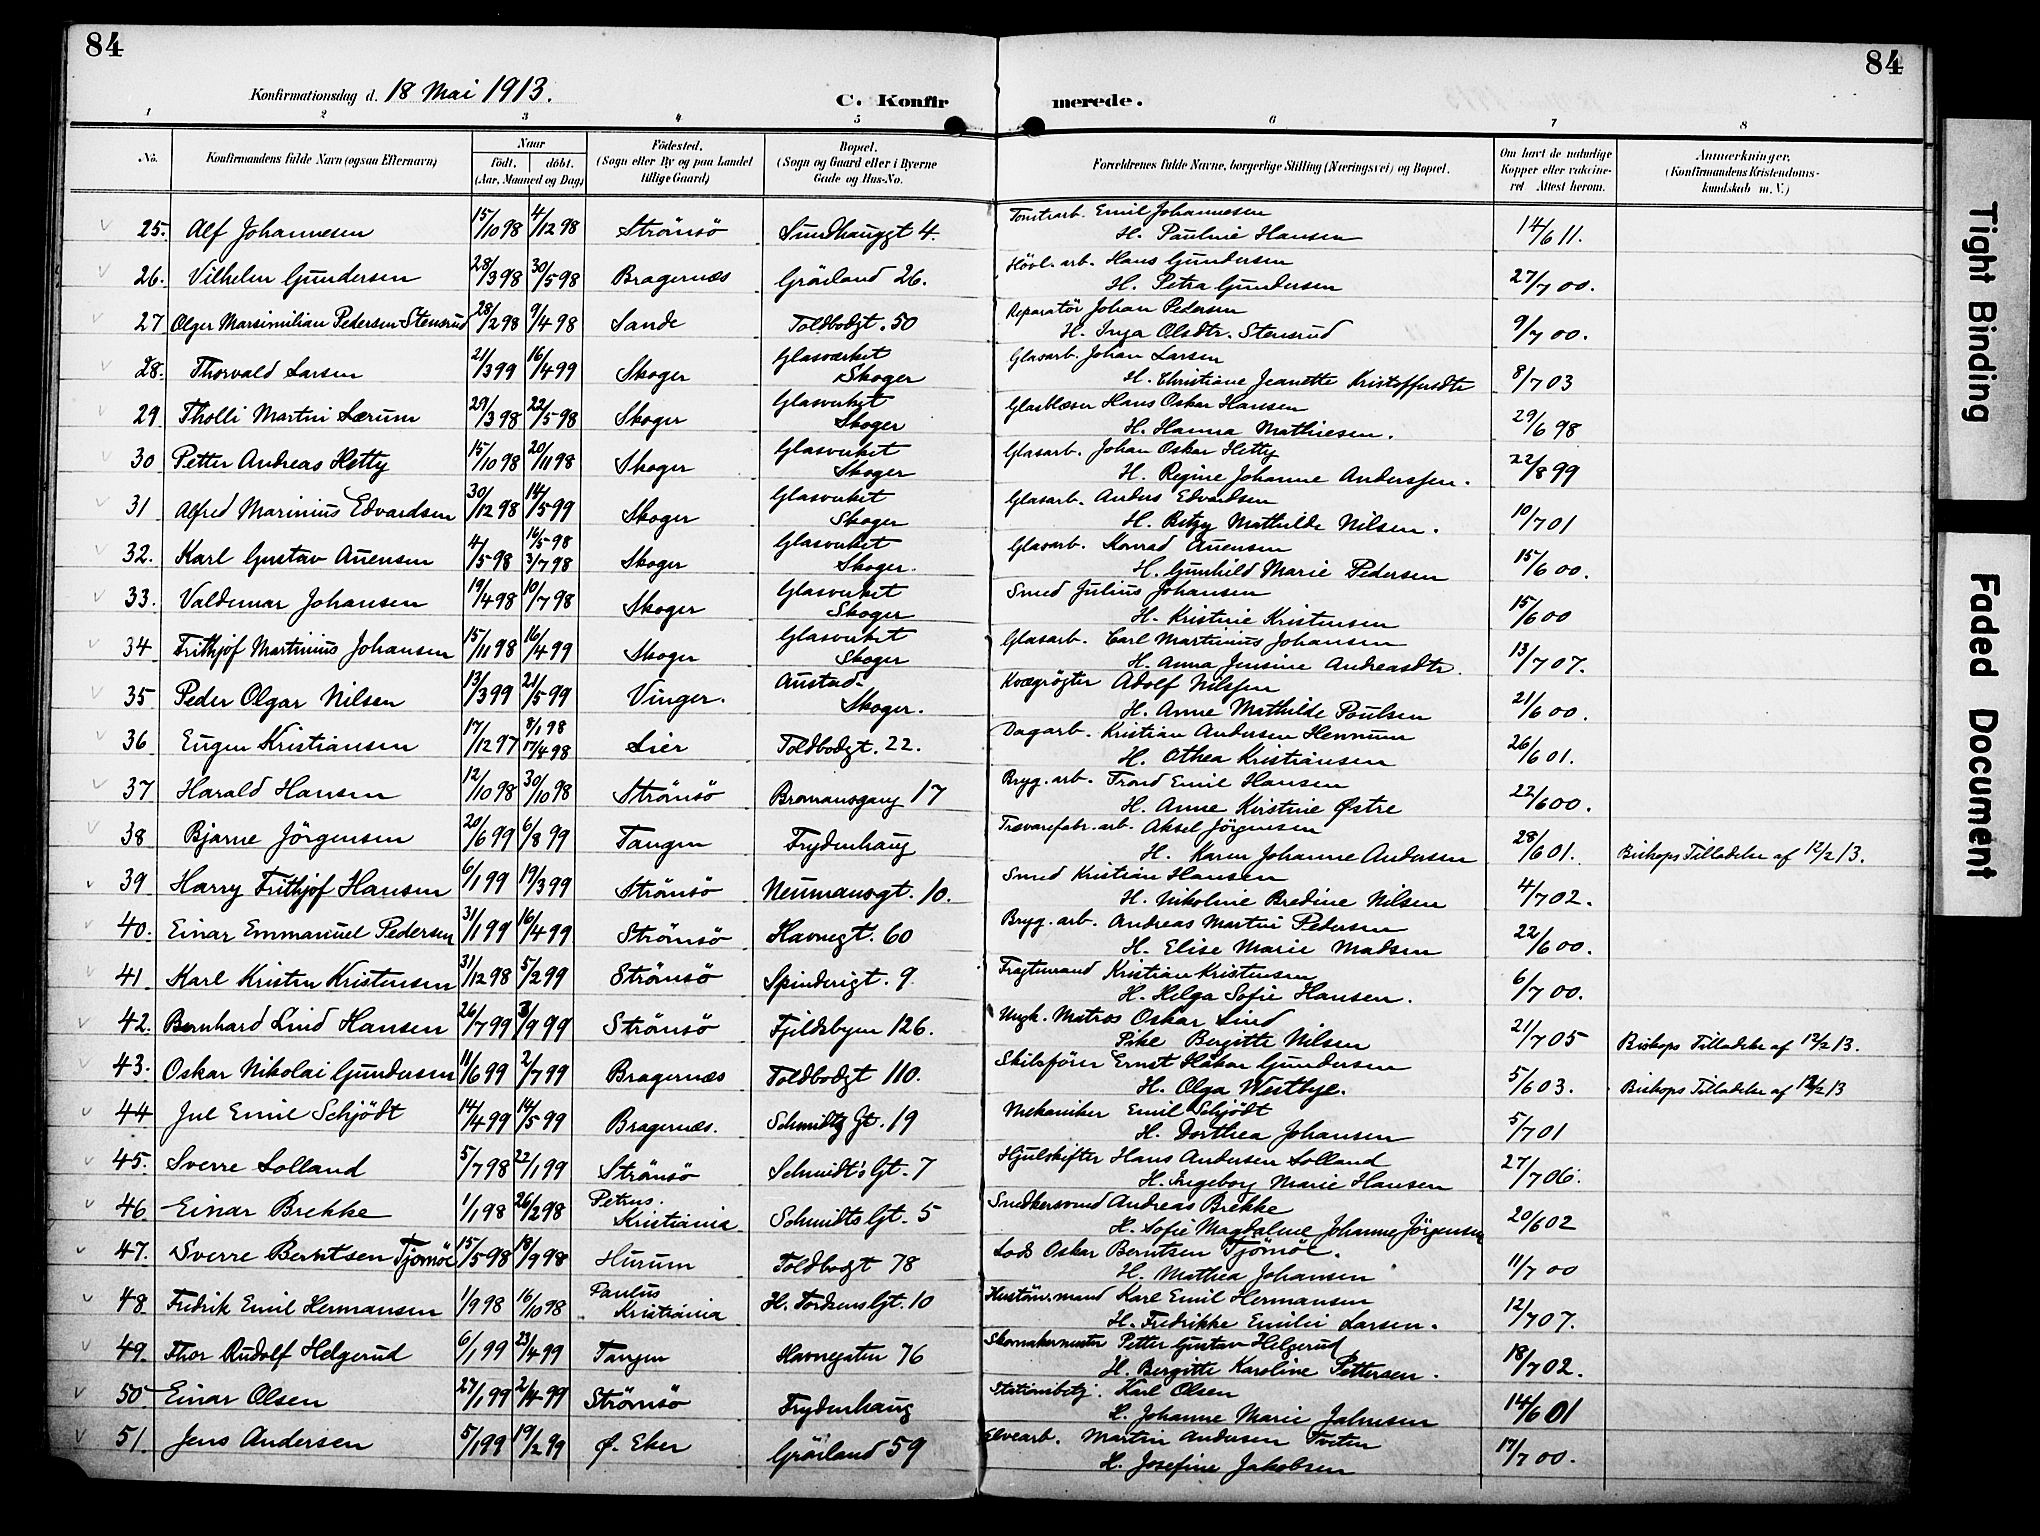 84
84
Konfirmationsdag d. 18 Mai 1913.
C. Konfirmerede.
1 2 3 4 5 6 7 8
No. Konfirmandens fulde Navn (ogsaa Efternavn) Naar født. døbt. (Aar, Maaned og Dag) Fødested. (Sogn eller By og paa Landet tillige Gaard) Bopæl. (Sogn og Gaard eller i Byerne Gade og Hus-No. Forældrenes fulde Navne, borgerlige Stilling (Næringsvei) og Bopæl. Om havt de naturlige Kopper eller vaccineret Attest herom. Anmerkninger. (Konfirmandens Kristendomskundskab m. V.)
25. Alf Johannesen 15/10 98 4/12 98 Strömsö Sundhauggt 4. Tomtearb. Emil Johannesen 14/6 11.
H. Pauline Hansen
26. Vilhelm Gundersen 28/3 98 30/5 98 Bragernæs Grönland 26. Hövl. arb. Hans Gundersen 27/7 00.
H. Petra Gundersen
27 Olger Marsimilian Pedersen Stensrud 28/2 98 9/4 98 Sande Toldbodgt. 50 Reparatör Johan Pedersen 9/7 00.
H. Inga Olsdtr. Stensrud
28. Thorvald Larsen 21/3 99 16/4 99 Skoger Glasværket Skoger Glasarb. Johan Larsen 8/7 03
H. Christiane Jeanette Kristoffersdtr
29 Tholli Martin Lærum 29/3 98 22/5 98 Skoger Glasverket Skoger Glasblæser Hans Oskar Hansen 29/6 98
H. Hanna Mathiesen.
30 Petter Andreas Hetty 15/10 98 20/11 98 Skoger Glasverket Skoger Glasarb. Johan Oskar Hetty 22/8 99
H. Regine Johanne Anderssen.
31 Alfred Marinius Edvardsen 30/12 98 14/5 99 Skoger Glasverket Skoger Glasarb. Anders Edvardsen 10/7 01
H. Betzy Mathilde Nilsen.
32. Karl Gustav Auensen 4/5 98 16/5 98 3/7 98 Skoger Glasverket Skoger. Glasarb. Konrad Auensen 15/6 00.
H. Gunhild Marie Pedersen
33. Valdemar Johansen 19/4 98 10/7 98 Skoger Glasverket Skoger Smed Julius Johansen 15/6 00
H. Kristine Kristensen
34 Frithjof Martinius Johansen 15/11 98 16/4 99 Skoger Glasverket Skoger Glasarb. Carl Martinius Johansen 13/7 07.
H. Anna Jensine Andreasdtr.
35 Peder Olgar Nilsen 13/3 99 21/5 99 Vinger. Austad- Skoger. Kvægrögter Adolf Nilssen 21/6 00.
H. Anne Mathilde Poulsen
36 Eugen Kristiansen 17/12 97 8/1 98 17/4 98 Lier Toldbodgt. 22. Dagarb. Kristian Andersen Hennum 26/6 01.
H. Othea Kristiansen
37 Harald Hansen 12/10 98 30/10 98 Strömsö Bromansgang 17 Bryg. arb. Trond Emil Hansen 22/6 00.
H. Anne Kirstine Østre
38 Bjarne Jörgensen 20/6 99 6/8 99 Tangen Frydenhaug Trævarefabr. arb. Aksel Jörgensen 28/6 01. Bishops Tilladelse af 12/2 13.
H. Karen Johanne Andersen
39 Harry Frithjof Hansen 6/1 99 19/3 99 Strömsö Neumansgt. 10. Smed Kristian Hansen 4/7 02.
H. Nikoline Bredine Nilsen
40. Einar Emmanuel Pedersen 31/1 99 16/4 99 Strömsö Havnegt. 60 Bryg. arb. Andreas Martin Pedersen 22/6 00.
H. Elise Marie Madsen
41. Karl Kristen Kristensen 31/12 98 5/2 99 Strömsö Spinderigt. 9. Fragtemand Kristian Kristensen 6/7 00.
H. Helga Sofie Hansen.
42. Bernhard Lind Hansen 26/7 99 3/9 99 Strömsö Fjeldsbyen 126. Ungk. Matros Oskar Lind 21/7 05 Bishops Tilladelse af 12/2 13.
Pike Bergitte Nilsen
43. Oskar Nikolai Gundersen 11/6 99 2/7 99 Bragernæs Toldbodgt 110. Skibsfören Ernst Hakon Gundersen 5/6 03. Bishops Tilladelse af 12/2 13
H. Olga Westbye.
44 Jul Emil Schjödt 14/4 99 14/5 99 Bragernæs. Schmidts Gt. 19 Mekaniker Emil Schjödt 5/7 01
H. Dorthea Johansen
45. Sverre Solland 5/7 98 22/1 99 Strömsö Schmidt's Gt. 7 Hjulskifter Hans Andersen Solland 27/7 06.
H. Ingeborg Marie Hansen
46. Einar Brekke 1/1 98 26/2 98 Petrus. Kristiania Schmidts Gt. 5 Snedkersvend Andreas Brekke 20/6 02
H. Sofie Magdalene Johanne Jörgensen
47. Sverre Berntsen Tjömöe 15/5 98 18/9 98 Hurum Toldbodgt 78 Lods Oskar Berntsen Tjömöe. 11/7 00
H. Mathea Johansen
48. Fredrik Emil Hermansen 1/9 98 16/10 98 Paulus Kristiania H. Tordsens Gt. 10 Hustömr. mand Karl Emil Hermansen 12/7 07.
H. Fredrikke Emilie Larsen.
49. Thor Rudolf Helgerud 6/1 99 23/4 99 Tangen Havnegaten 76 Skomakermester Petter Gustav Helgerud 18/7 02.
H. Bergitte Karoline Pettersen.
50. Einar Olsen 27/1 99 2/4 99 Strömsö Frydenhaug Stationsbetj. Karl Olsen 14/6 01
H. Johanne Marie Jahnsen
51. Jens Andersen 5/1 99 19/2 99 Ø. Eker Grönland 59 Elvearb. Martin Andersen Tveten 17/7 00.
H. Josefine Jakobsen
Tight Binding
Faded Document